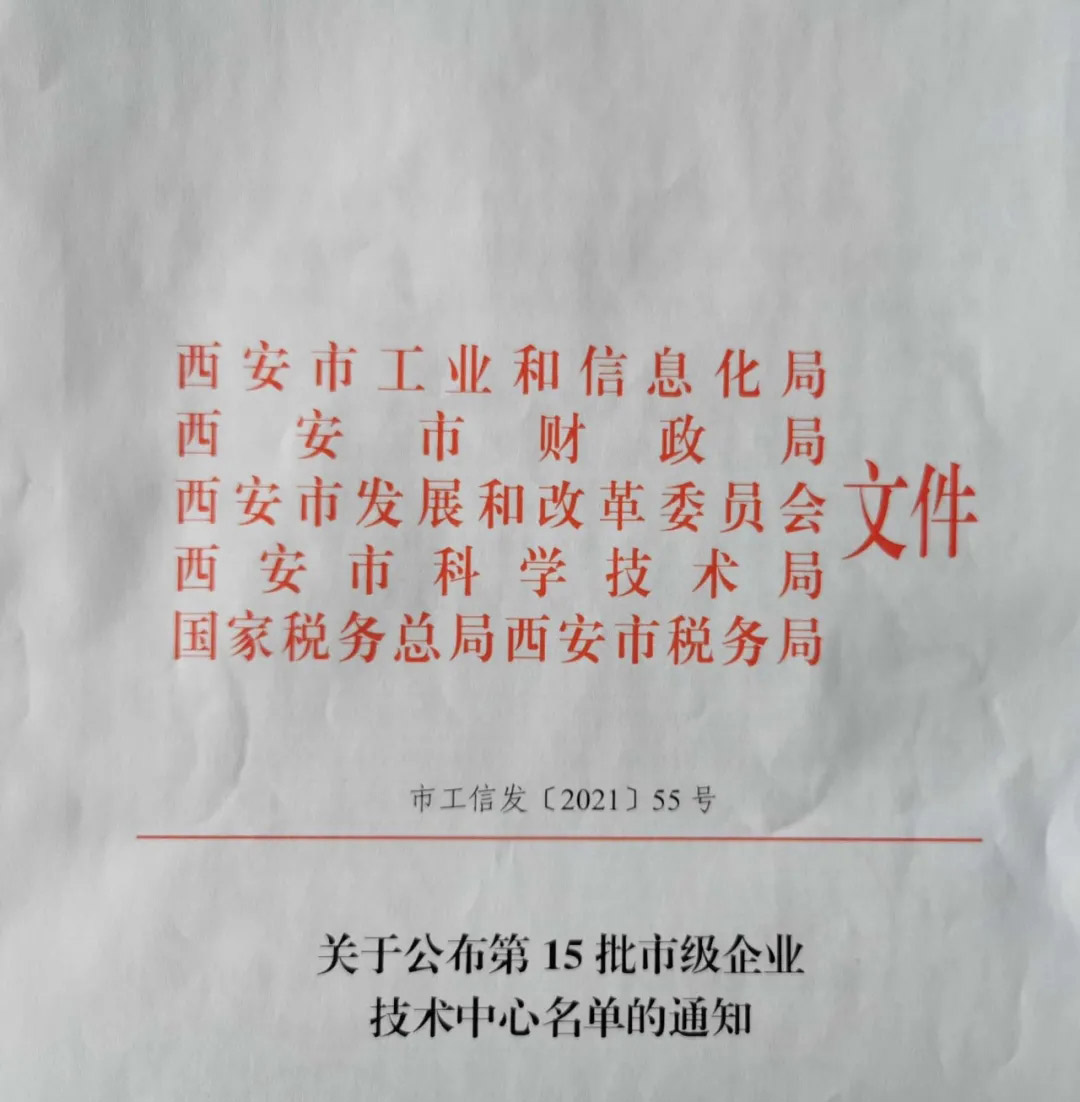 西安市工业和信息化局
西安市财政局
西安市发展和改革委员会
文件
西安市科学技术局
国家税务总局西安市税务局
市工信发〔2021〕55 号
关于公布第 15 批市级企业
技术中心名单的通知